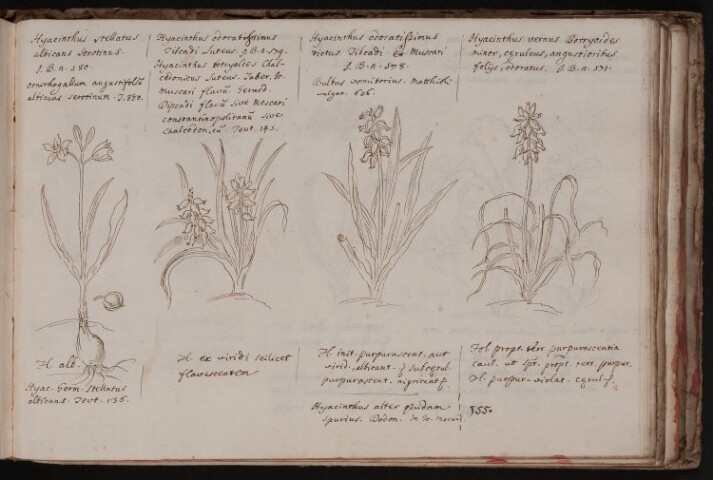 Hyacinthus stellatus
albicans serotinus.
J. B. n. 580.
ornithogallum angustifoliũ
albicans serotinum. T. 380.
Hyacinthus odoratissimus
Tibcadi Luteus. J. B. n. 579.
Hyacinthus botryoides Chal-
cedonicus Luteus. Taber. Ic.
Muscari flavũ. Gerard.
Dipcadi flavũ sive Moscari
constantinopolitanũ sive
chalcedon, cũ Teut. 145.
Hyacinthus odoratissimus
Tibcadi ex Muscari
J. B. n. 578.
Bulbus vomitorius. Matthioli
vulgar. 636.
Hyacinthus vernus Botryoides
minor, cęruleus, angustioribus
folys, odoratus. J. B. n. 571.
Fl. alb.
Hyac. Germ. stellatus
albicans. Teut. 136.
Fl. ex viridi scilicet
flavescentem
Fl. init. purpurascent. aut
virid. albicant.
purpurascent. nigricant
Hyacinthus alter
spurius. Dodon. in
Fol. propt. terr. purpurascentia
caul. ut terr. purpur.
Fl. purpur-violat.
1550.